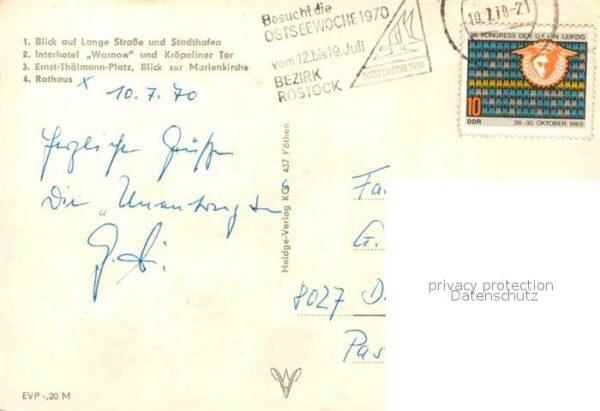 1. Blick auf Lange Straße und Stadthafen
2. Interhotel „Warnow" und Kröpeliner Tor
3. Ernst-Thälmann-Platz, Blick zur Marienkirche
4. Rathaus x
10.7.70
Herzliche Grüße
Die „
G.
EVP -,20 M
Heldge-Verlag KG 437 Köthen
Besucht die
OSTSEEWOCHE 1970
vom 12. bis 19. Juli
BEZIRK
ROSTOCK
OSTSEEWOCHE 1970
10.7.70-21
26. KONGRESS DER U.F.I. IN LEIPZIG
10
DDR
28.-30. OKTOBER 1969
Fa
G.
8027 D
Pas
privacy protection
Datenschutz